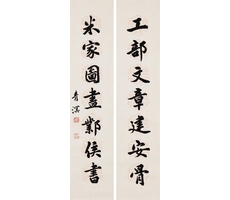 工部文章建安骨
米家圖畫鄴侯書
青溪